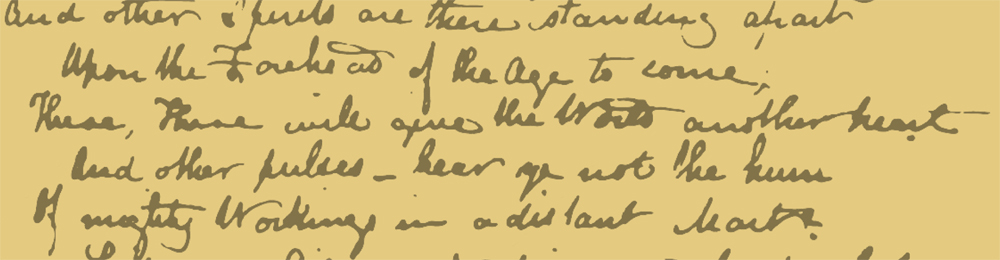 And other Spirits are there standing apart
Upon the Forehead of the Age to come;
These, These will give the World another heart
And other pulses – hear ye not the hum
Of mighty Workings in a distant Mart?